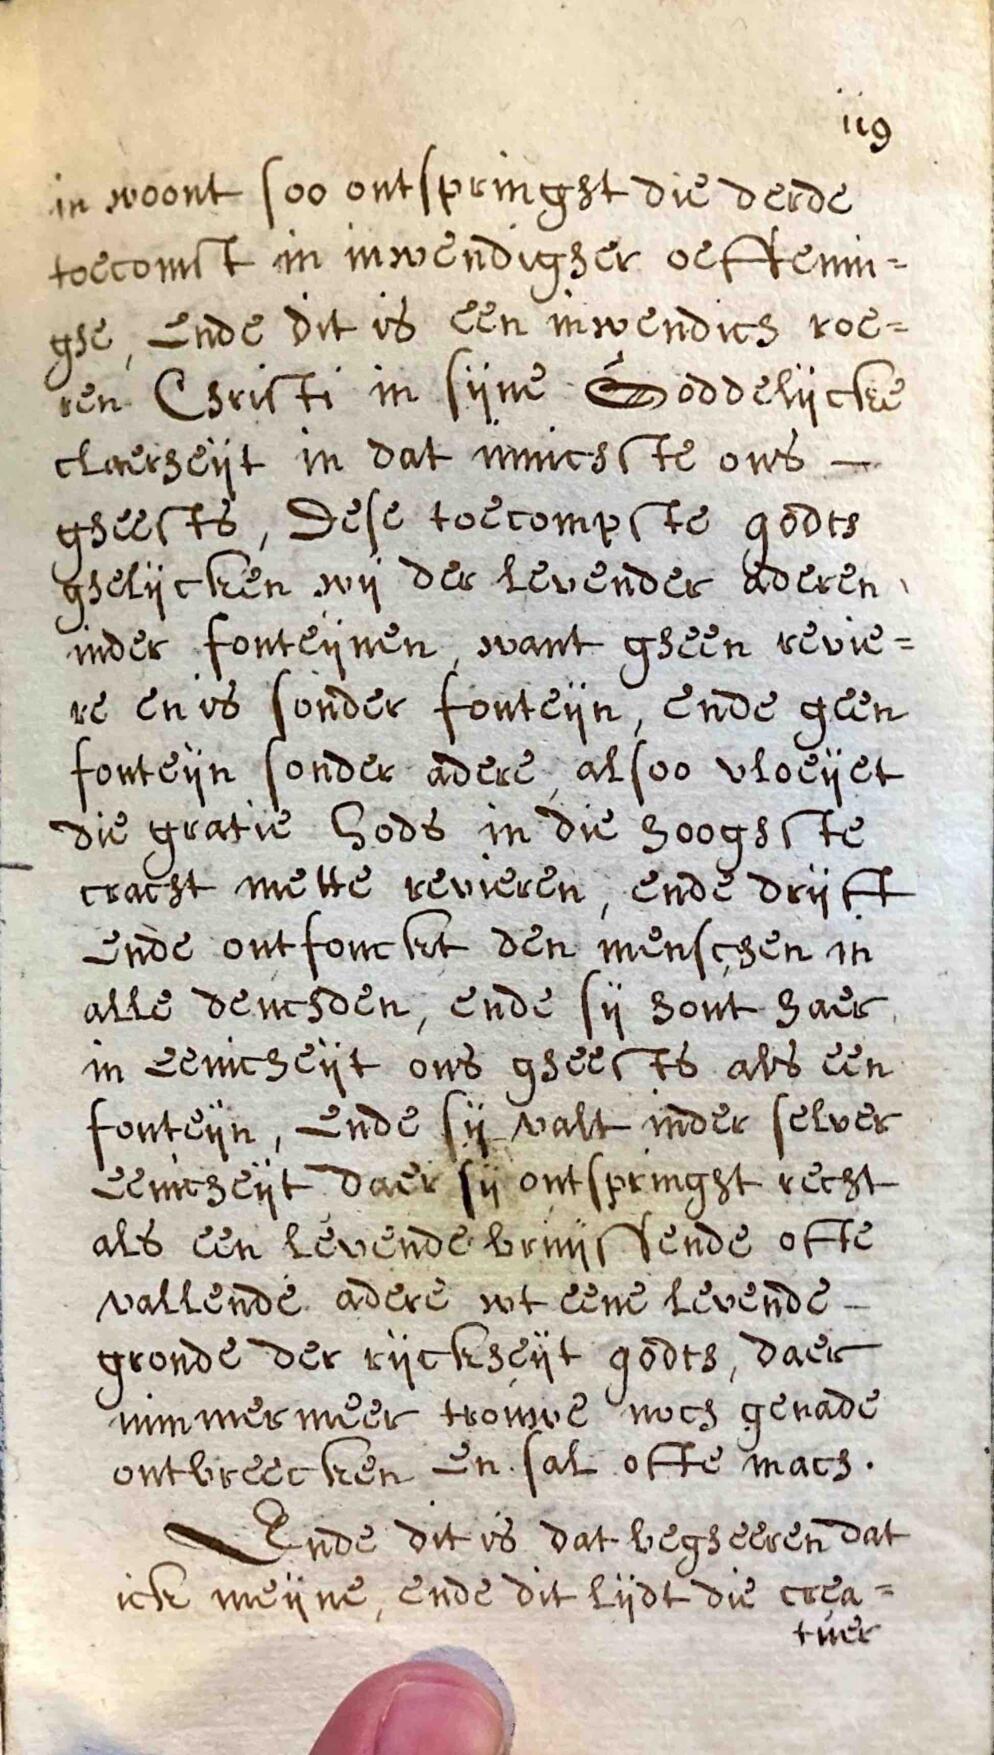 119
in woont soo ontspringht die derde
toecomst in inwendigher oeffenin=
ghe, Ende dit is een inwendich roe=
ren Christi in sijne Goddelijcke
claerheijt in dat innichste ons —
gheests, Dese toecompste godts
ghelijcken wij der levender aderen
inder fonteijnen, want gheen revie=
re en is sonder fonteijn, ende geen
fonteijn sonder adere, alsoo vloeijet
die gratie Gods in die hooghste
cracht mette revieren, ende drijft
Ende ontfonckt den menschen in
alle deuchden, ende sij hout haer
in Eenicheijt ons gheests als een
fonteijn, Ende sij valt inder selver
Eenicheijt daer sij ontspringht recht
als een levende bruijssende ofte
vallende adere wt eene levende —
gronde der rijckheijt godts, daer
nimmermeer trouwe noch genade
ontbreecken En sal ofte mach.
Ende dit is dat begheeren dat
ick meijne, ende dit lijdt die crea=
tuer